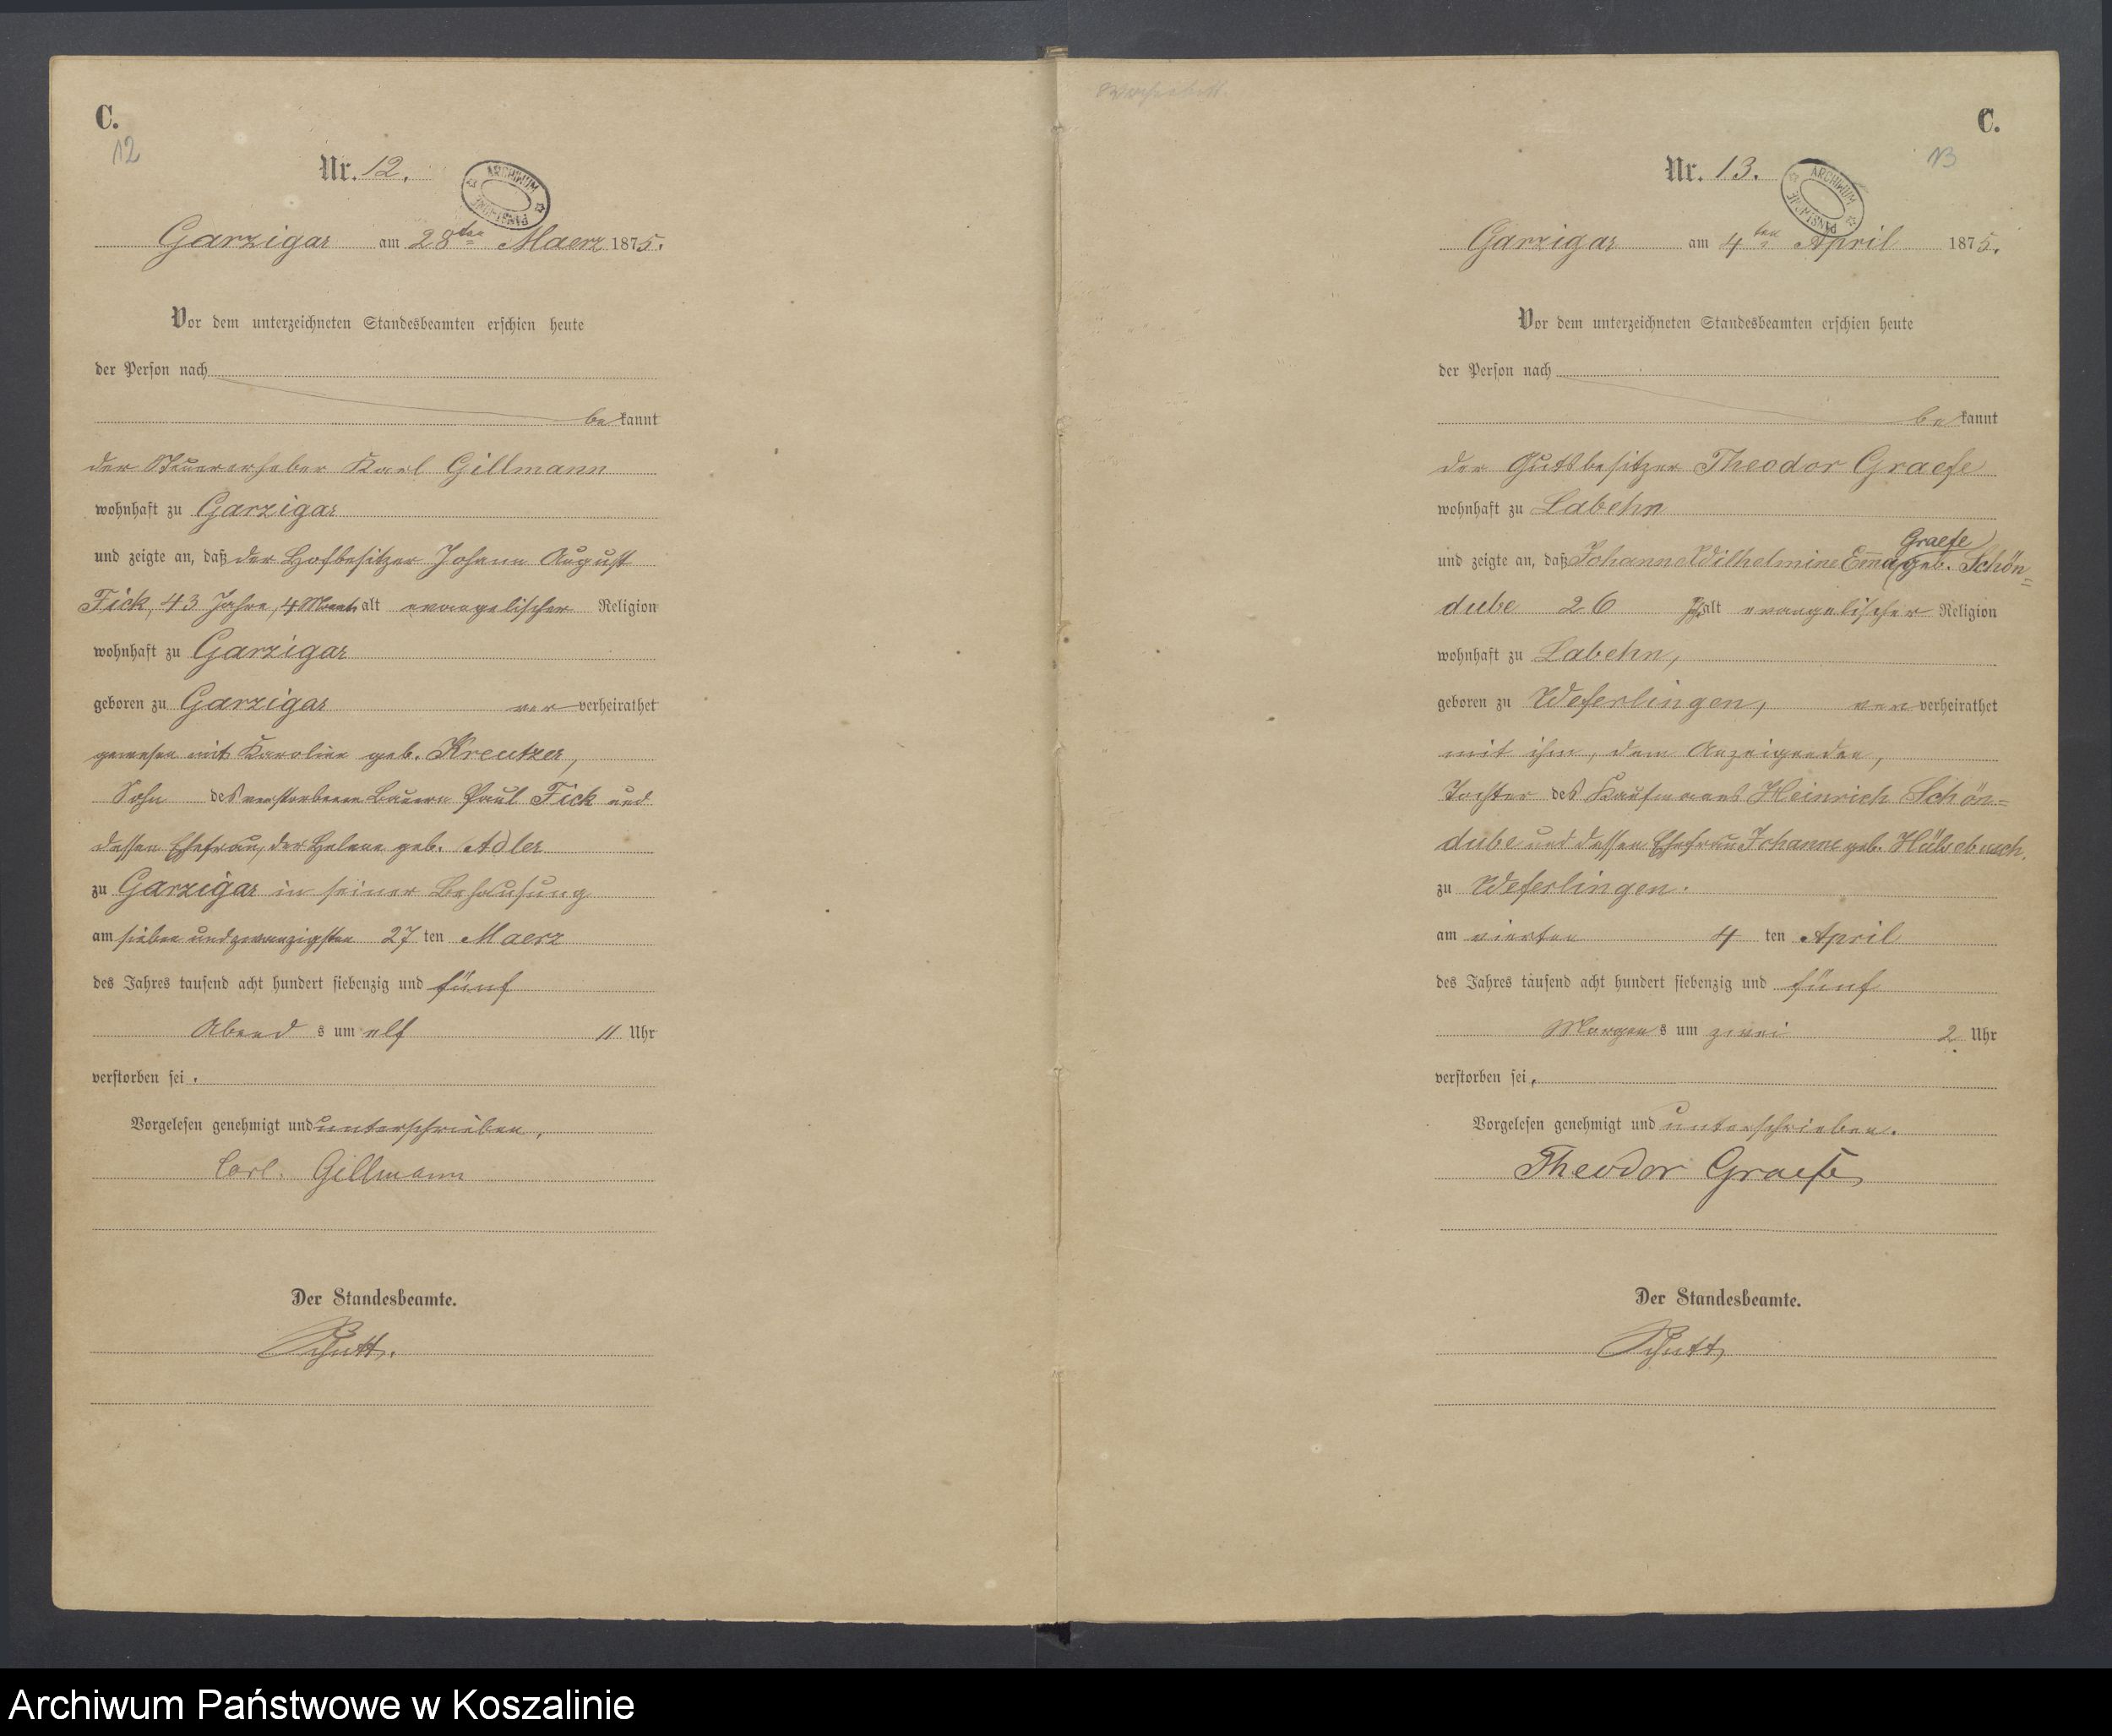 C.
12
Nr. 12.
ARCHIWUM PAŃSTWOWE
Garzigar am 28ten Maerz 1875.
Vor dem unterzeichneten Standesbeamten erschien heute
der Person nach
be kannt
der Steuererheber Karl Gillmann
wohnhaft zu Garzigar
und zeigte an, daß der Hofbesitzer Johann August
Fick, 43 Jahre, 4 Monat alt evangelischer Religion
wohnhaft zu Garzigar
geboren zu Garzigar ver verheirathet
gewesen mit Karoline geb. Kreutzer,
Sohn des verstorbenen Bauern Paul Fick und
dessen Ehefrau, der Helene geb. Adler
zu Garzigar in seiner Behausung
am sieben und zwanzigsten 27 ten Maerz
des Jahres tausend acht hundert siebenzig und fünf
Abend s um elf 11 Uhr
verstorben sei.
Vorgelesen genehmigt und unterschrieben.
Carl. Gillmann
Der Standesbeamte.
Schutt.
C.
13
Nr. 13.
ARCHIWUM PAŃSTWOWE
Garzigar am 4ten April 1875.
Vor dem unterzeichneten Standesbeamten erschien heute
der Person nach
be kannt
der Gutsbesitzer Theodor Graefe
wohnhaft zu Labehn
Graefe
und zeigte an, daß Johanne Wilhelmine Em̅a geb. Schön=
dube 26 J. alt evangelischer Religion
wohnhaft zu Labehn,
geboren zu Weferlingen, ver verheirathet
mit ihm, dem Anzeigenden,
Tochter des Kaufmanns Heinrich Schön=
dube und dessen Ehefrau Johanne geb. Hülsebusch.
zu Weferlingen.
am vierten 4 ten April
des Jahres tausend acht hundert siebenzig und fünf
Morgen s um zwei 2 Uhr
verstorben sei.
Vorgelesen genehmigt und unterschrieben.
Theodor Graefe
Der Standesbeamte.
Schutt
Archiwum Państwowe w Koszalinie